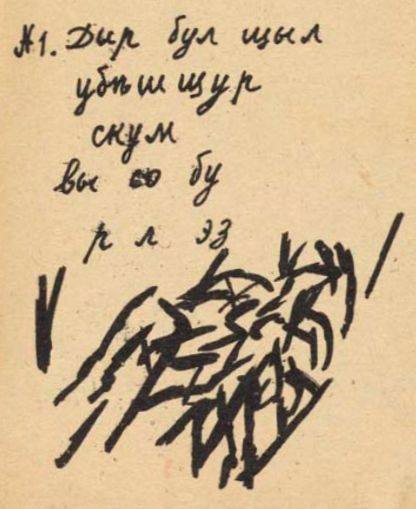 №1. Дыр бул щыл
убѣшщур
скум
вы со бу
р л эз